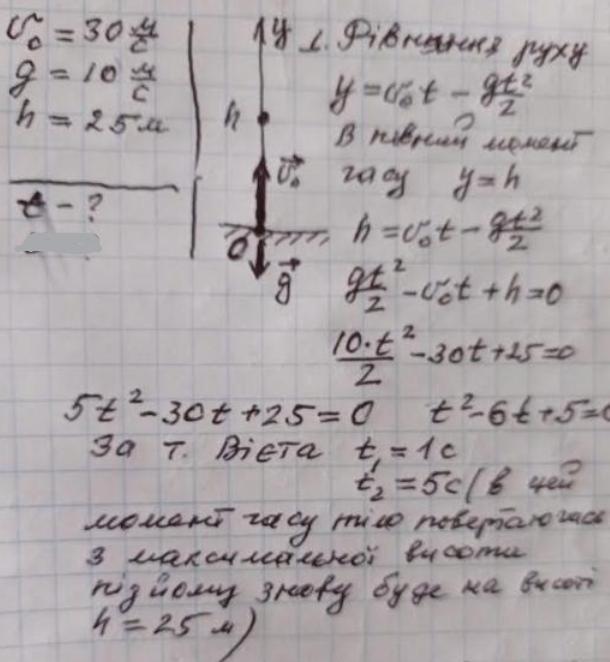 v₀ = 30 м/с
g = 10 м/с
h = 25 м
t - ?
y
h
v₀
0
g
1. Рівняння руху
y = v₀t - gt²/2
В певний момент
часу y = h
h = v₀t - gt²/2
gt²/2 - v₀t + h = 0
10·t²/2 - 30t + 25 = 0
5t² - 30t + 25 = 0 t² - 6t + 5 = 0
За т. Вієта t₁ = 1с
t₂ = 5с (в цей
момент часу тіло повертаючись
з максимальної висоти
підйому знову буде на висоті
h = 25 м)